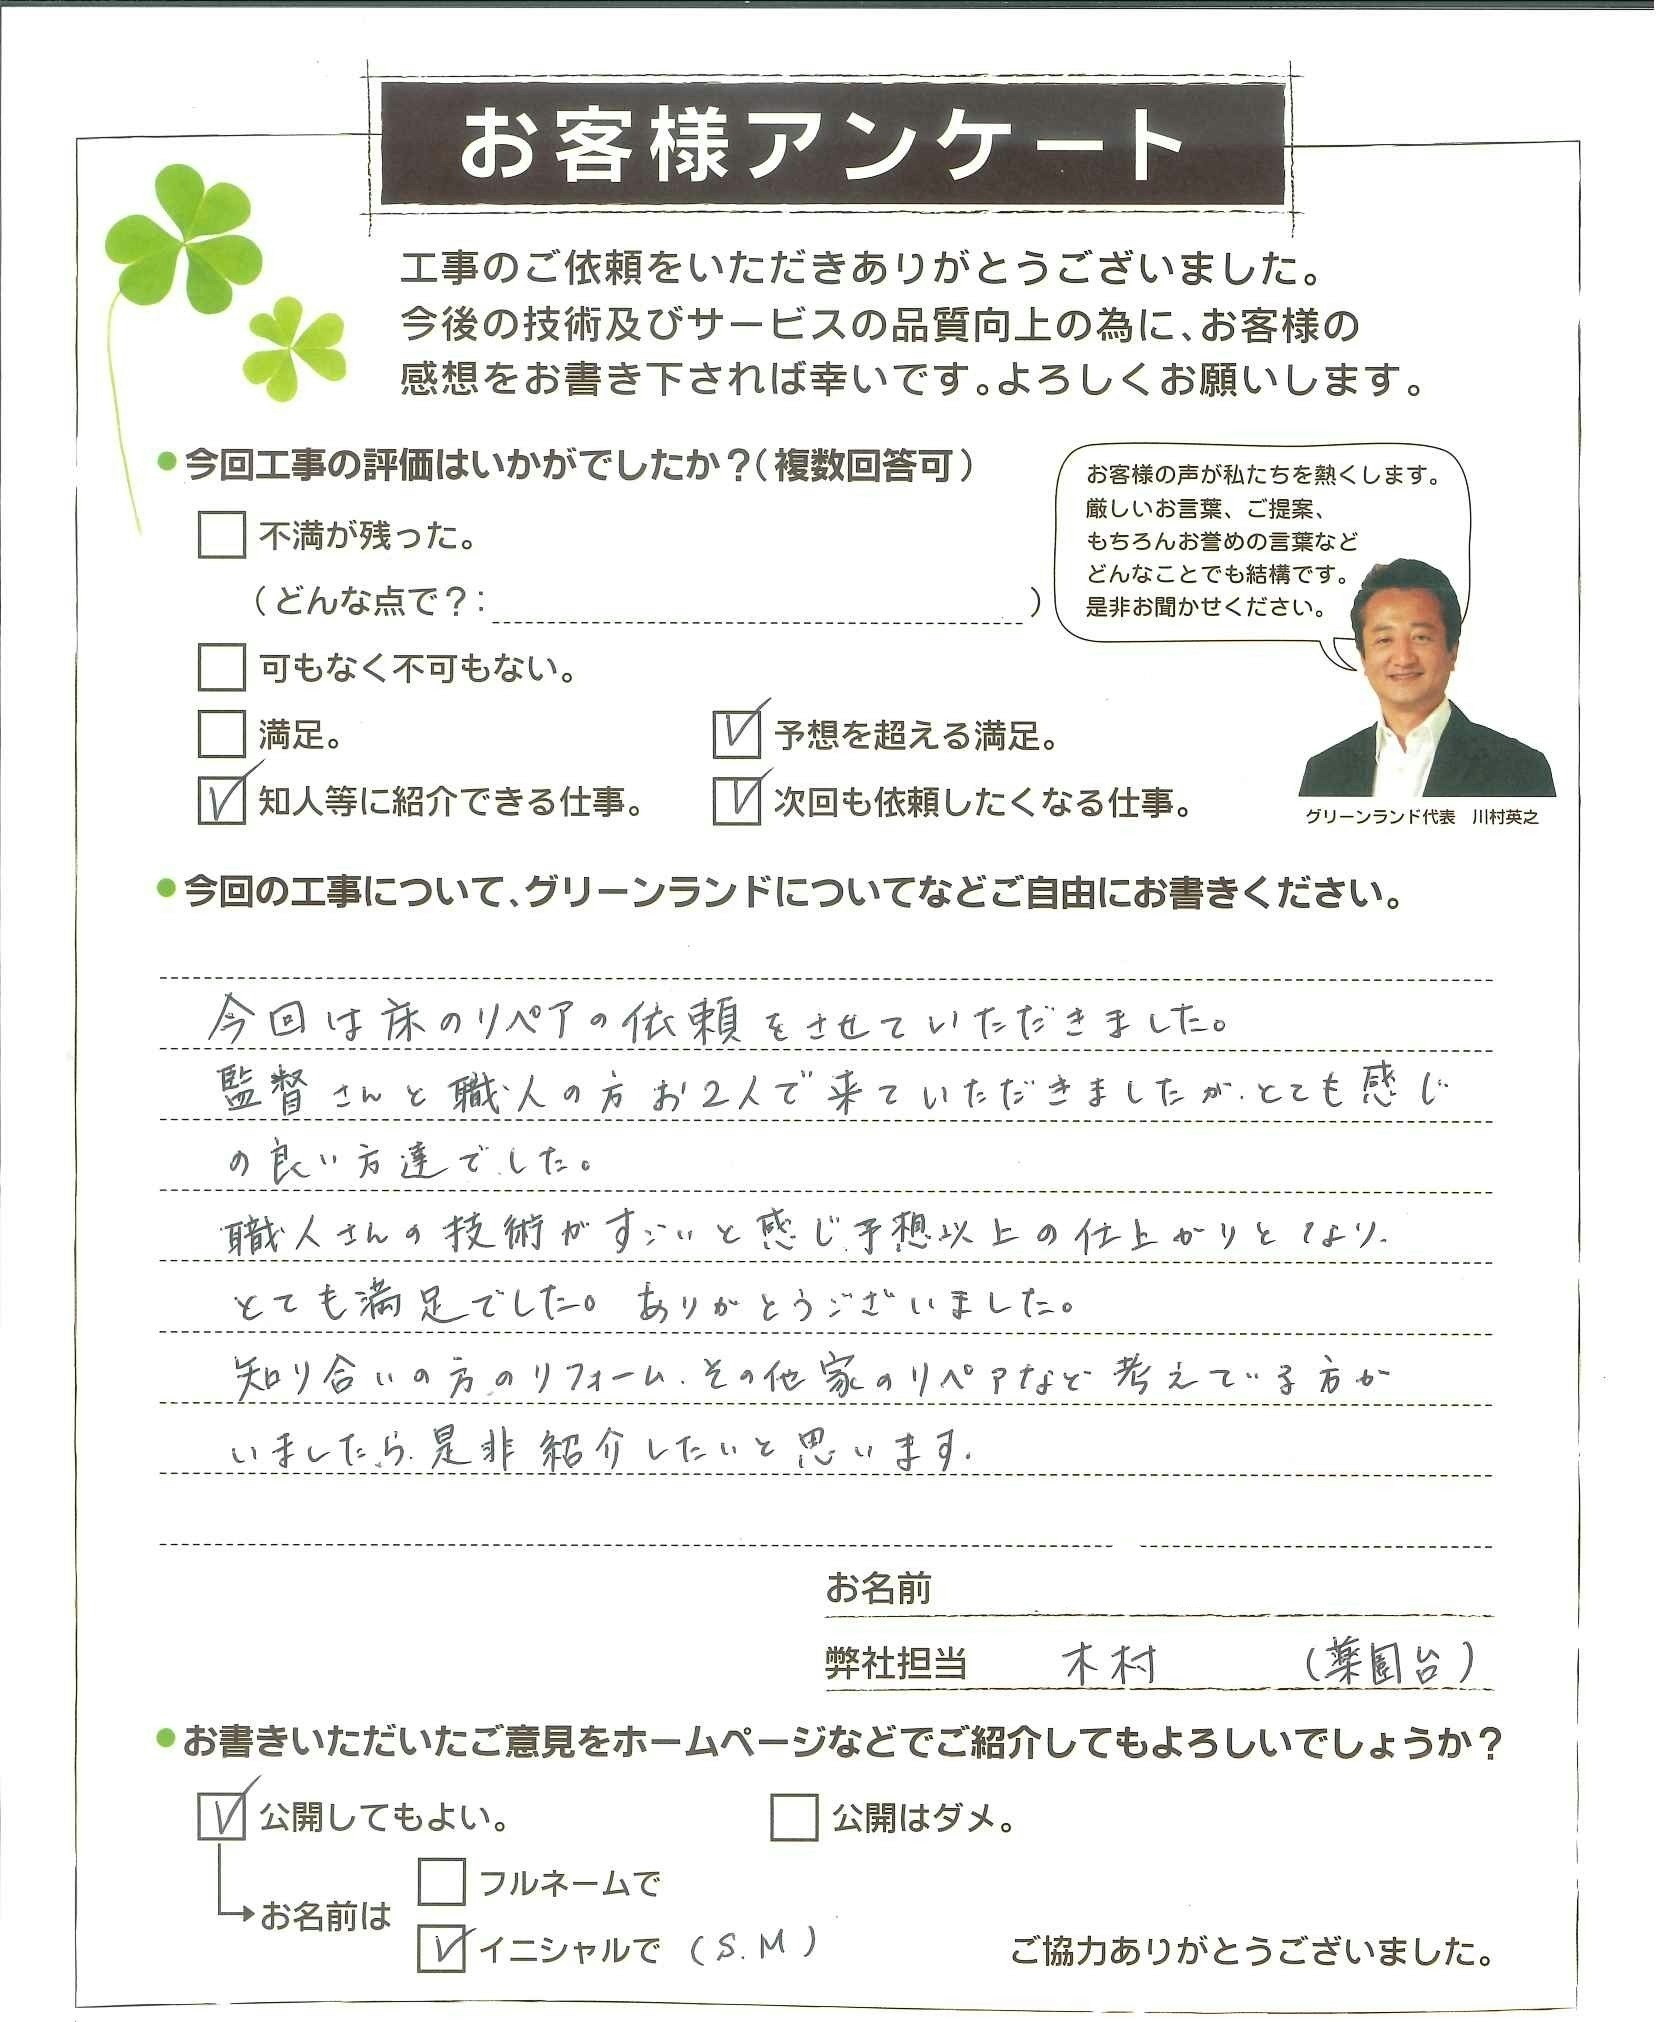 お客様アンケート
工事のご依頼をいただきありがとうございました。
今後の技術及びサービスの品質向上の為に、お客様の
感想をお書き下されば幸いです。よろしくお願いします。
●今回工事の評価はいかがでしたか?(複数回答可)
お客様の声が私たちを熱くします。
厳しいお言葉、ご提案、
もちろんお誉めの言葉など
どんなことでも結構です。
是非お聞かせください。
不満が残った。
(どんな点で?: )
可もなく不可もない。
満足。
予想を超える満足。
知人等に紹介できる仕事。
次回も依頼したくなる仕事。
グリーンランド代表 川村英之
●今回の工事について、グリーンランドについてなどご自由にお書きください。
今回は床のリペアの依頼をさせていただきました。
監督さんと職人の方お2人で来ていただきましたが、とても感じ
の良い方達でした。
職人さんの技術がすごいと感じ予想以上の仕上がりとなり、
とても満足でした。ありがとうございました。
知り合いの方のリフォーム、その他家のリペアなど考えている方が
いましたら、是非紹介したいと思います。
お名前
弊社担当 木村 (薬園台)
●お書きいただいたご意見をホームページなどでご紹介してもよろしいでしょうか?
公開してもよい。
公開はダメ。
お名前は
フルネームで
イニシャルで (S.M)
ご協力ありがとうございました。